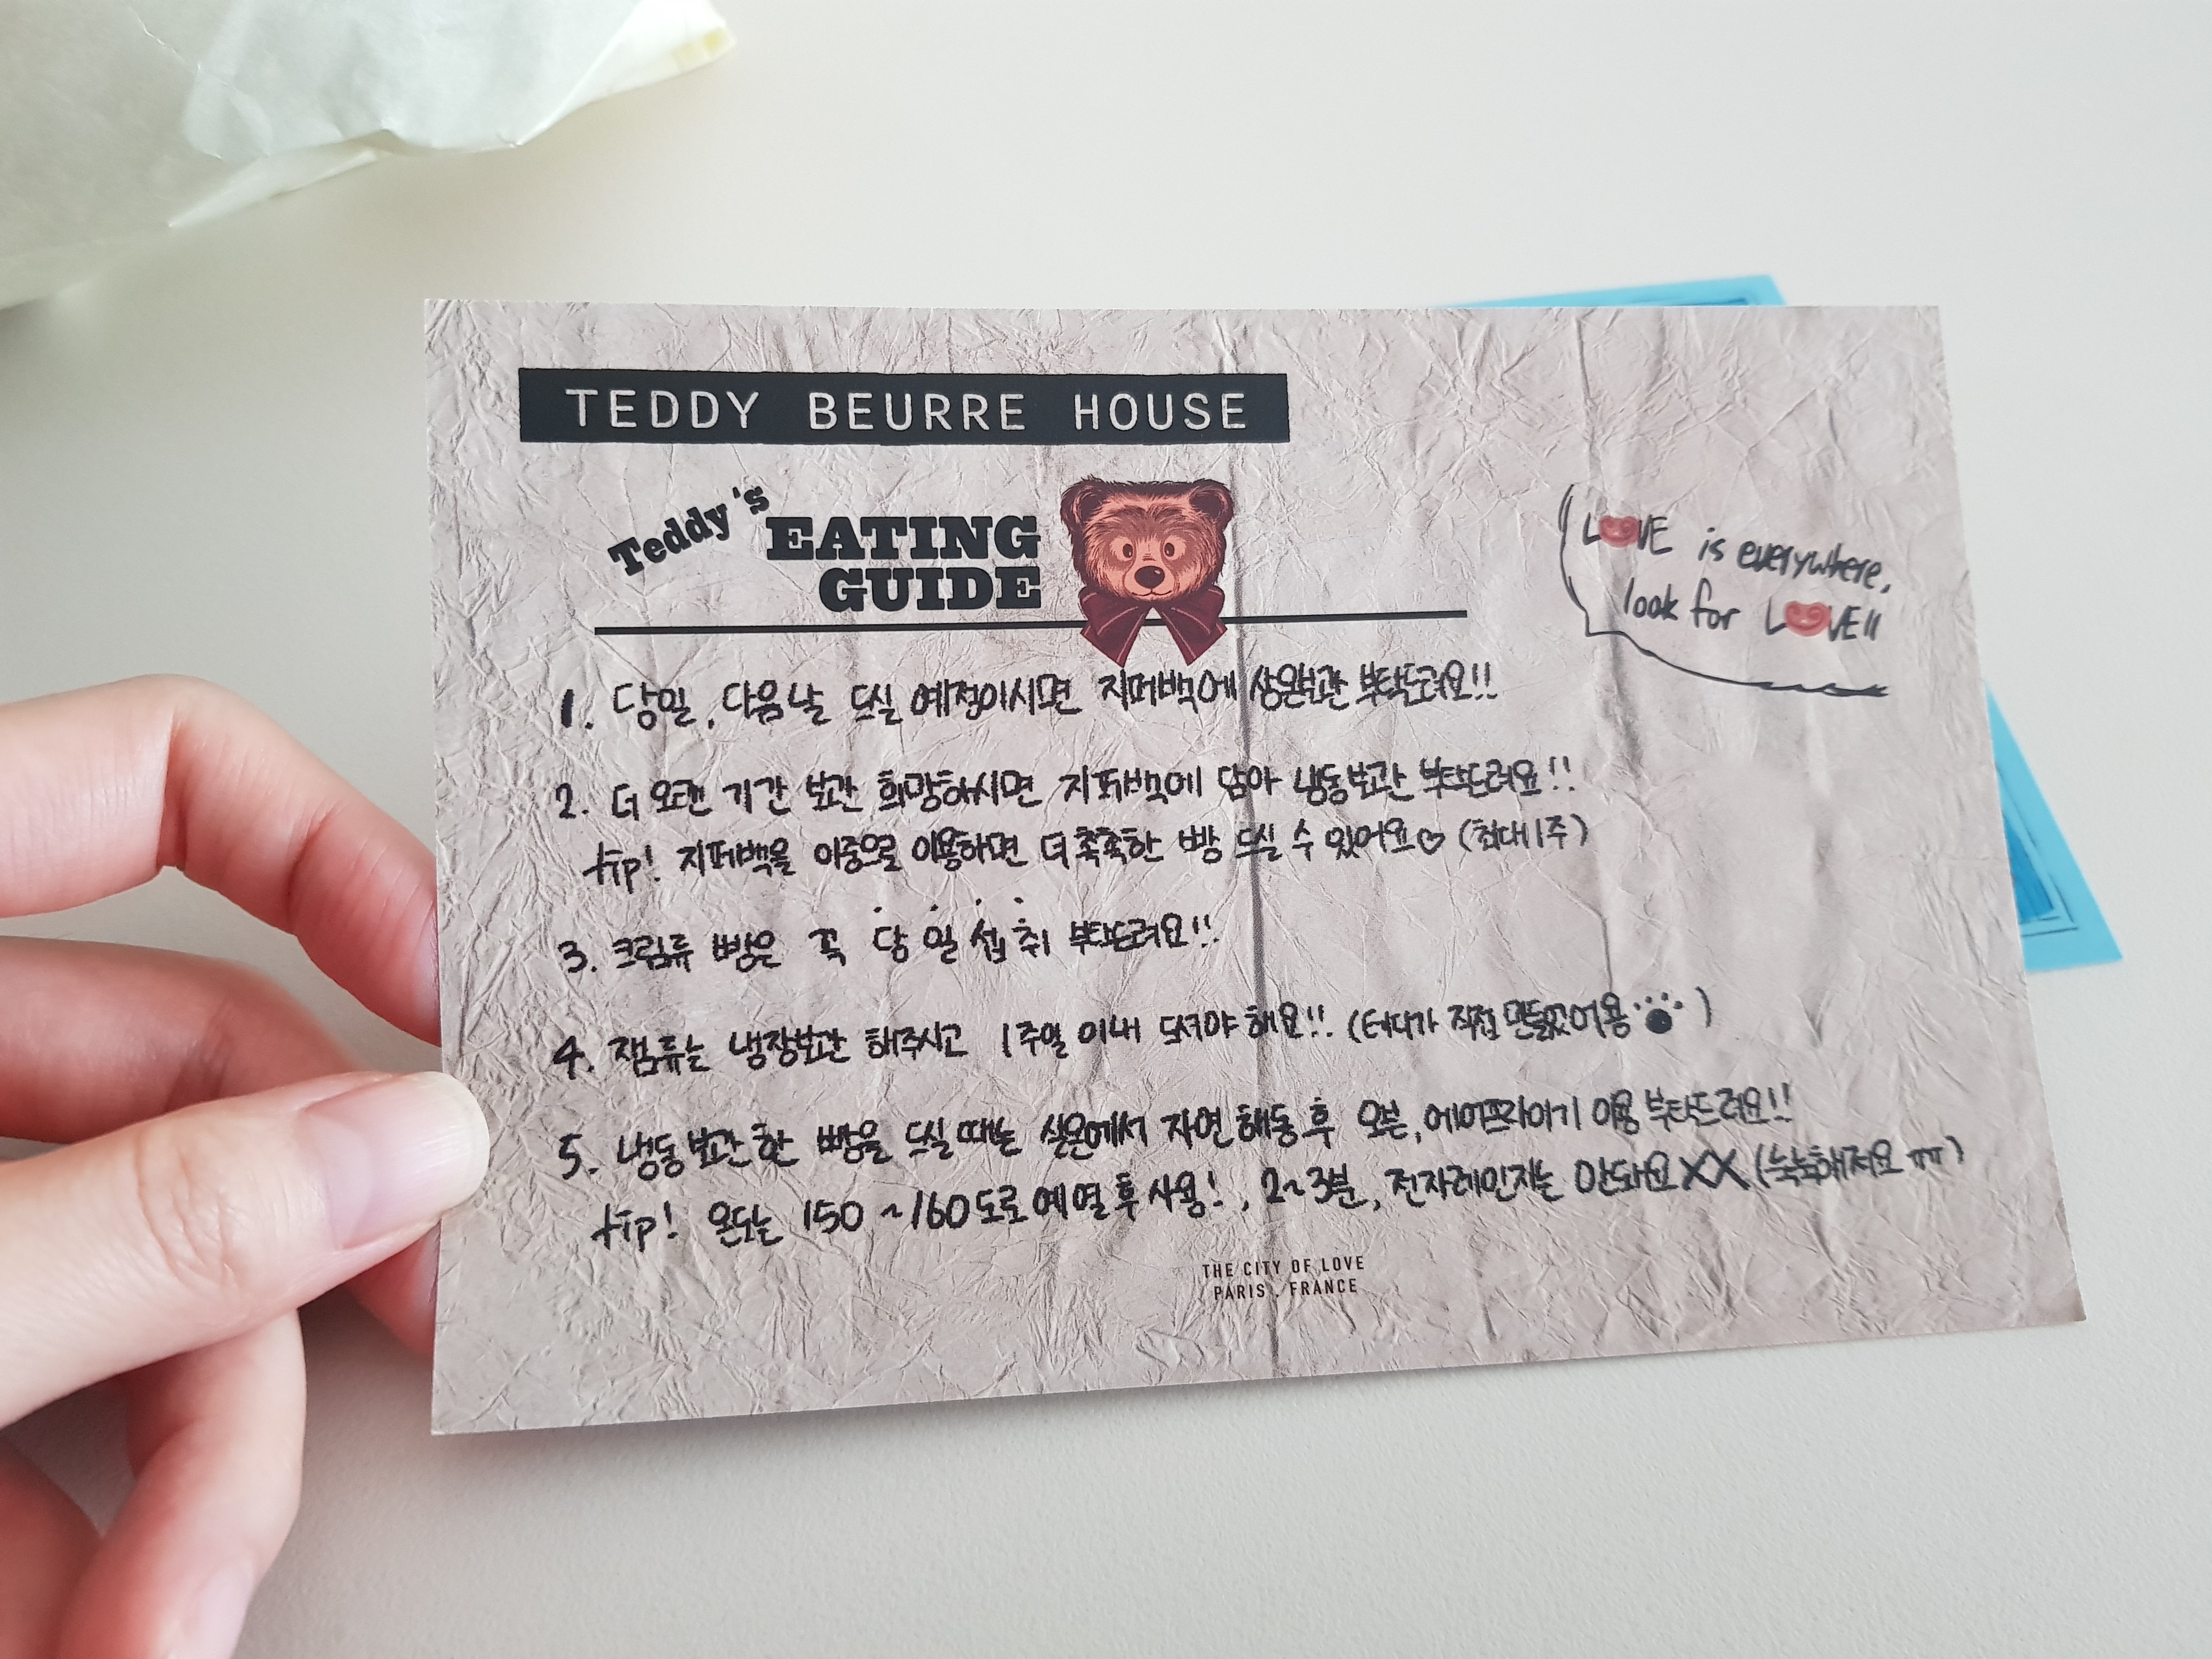 TEDDY BEURRE HOUSE
Teddy's
EATING
GUIDE
LOVE is everywhere,
look for LOVE!!
1. 당일, 다음날 드실 예정이시면 지퍼백에 상온보관 부탁드려요!!
2. 더 오랜 기간 보관 희망하시면 지퍼백에 담아 냉동보관 부탁드려요!!
tip! 지퍼백을 이중으로 이용하면 더 촉촉한 빵 드실 수 있어요♡ (최대 1주)
3. 크림류 빵은 꼭 당일섭취 부탁드려요!!
4. 잼류는 냉장보관 해주시고 1주일 이내 드셔야 해요!! (테디가 직접 만들었어용)
5. 냉동보관한 빵을 드실 때는 실온에서 자연해동 후 오븐, 에어프라이기 이용 부탁드려요!!
tip! 온도는 150~160도로 예열 후 사용!, 2~3분, 전자레인지는 안돼요XX (눅눅해져요 ㅠㅠ)
THE CITY OF LOVE
PARIS, FRANCE